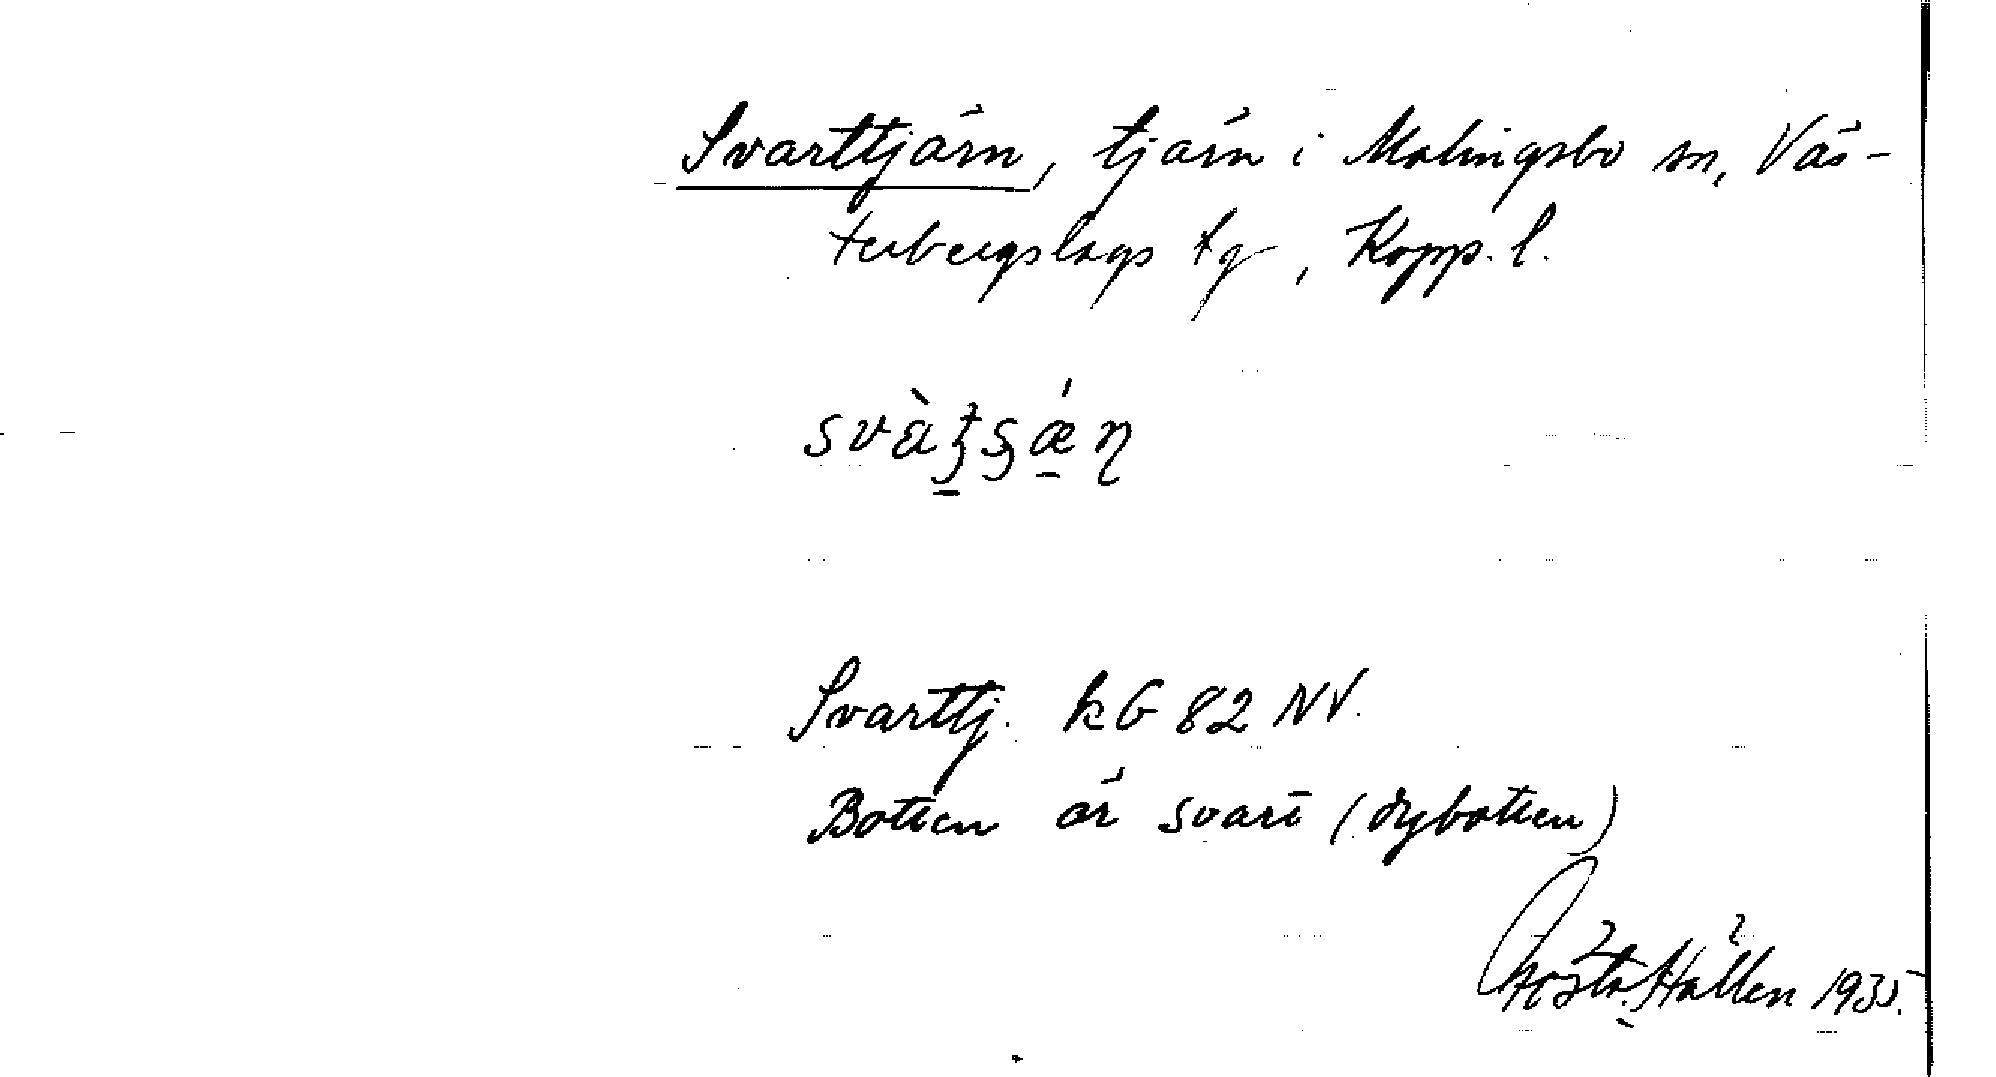 Svarttjärn, tjärn i Malingsbo sn, Väs-
terbergslags tg, Kopp. l.
Svarttj. kG 82 NV.
Botten är svart (dybotten)
Gösta Hallén 1935.